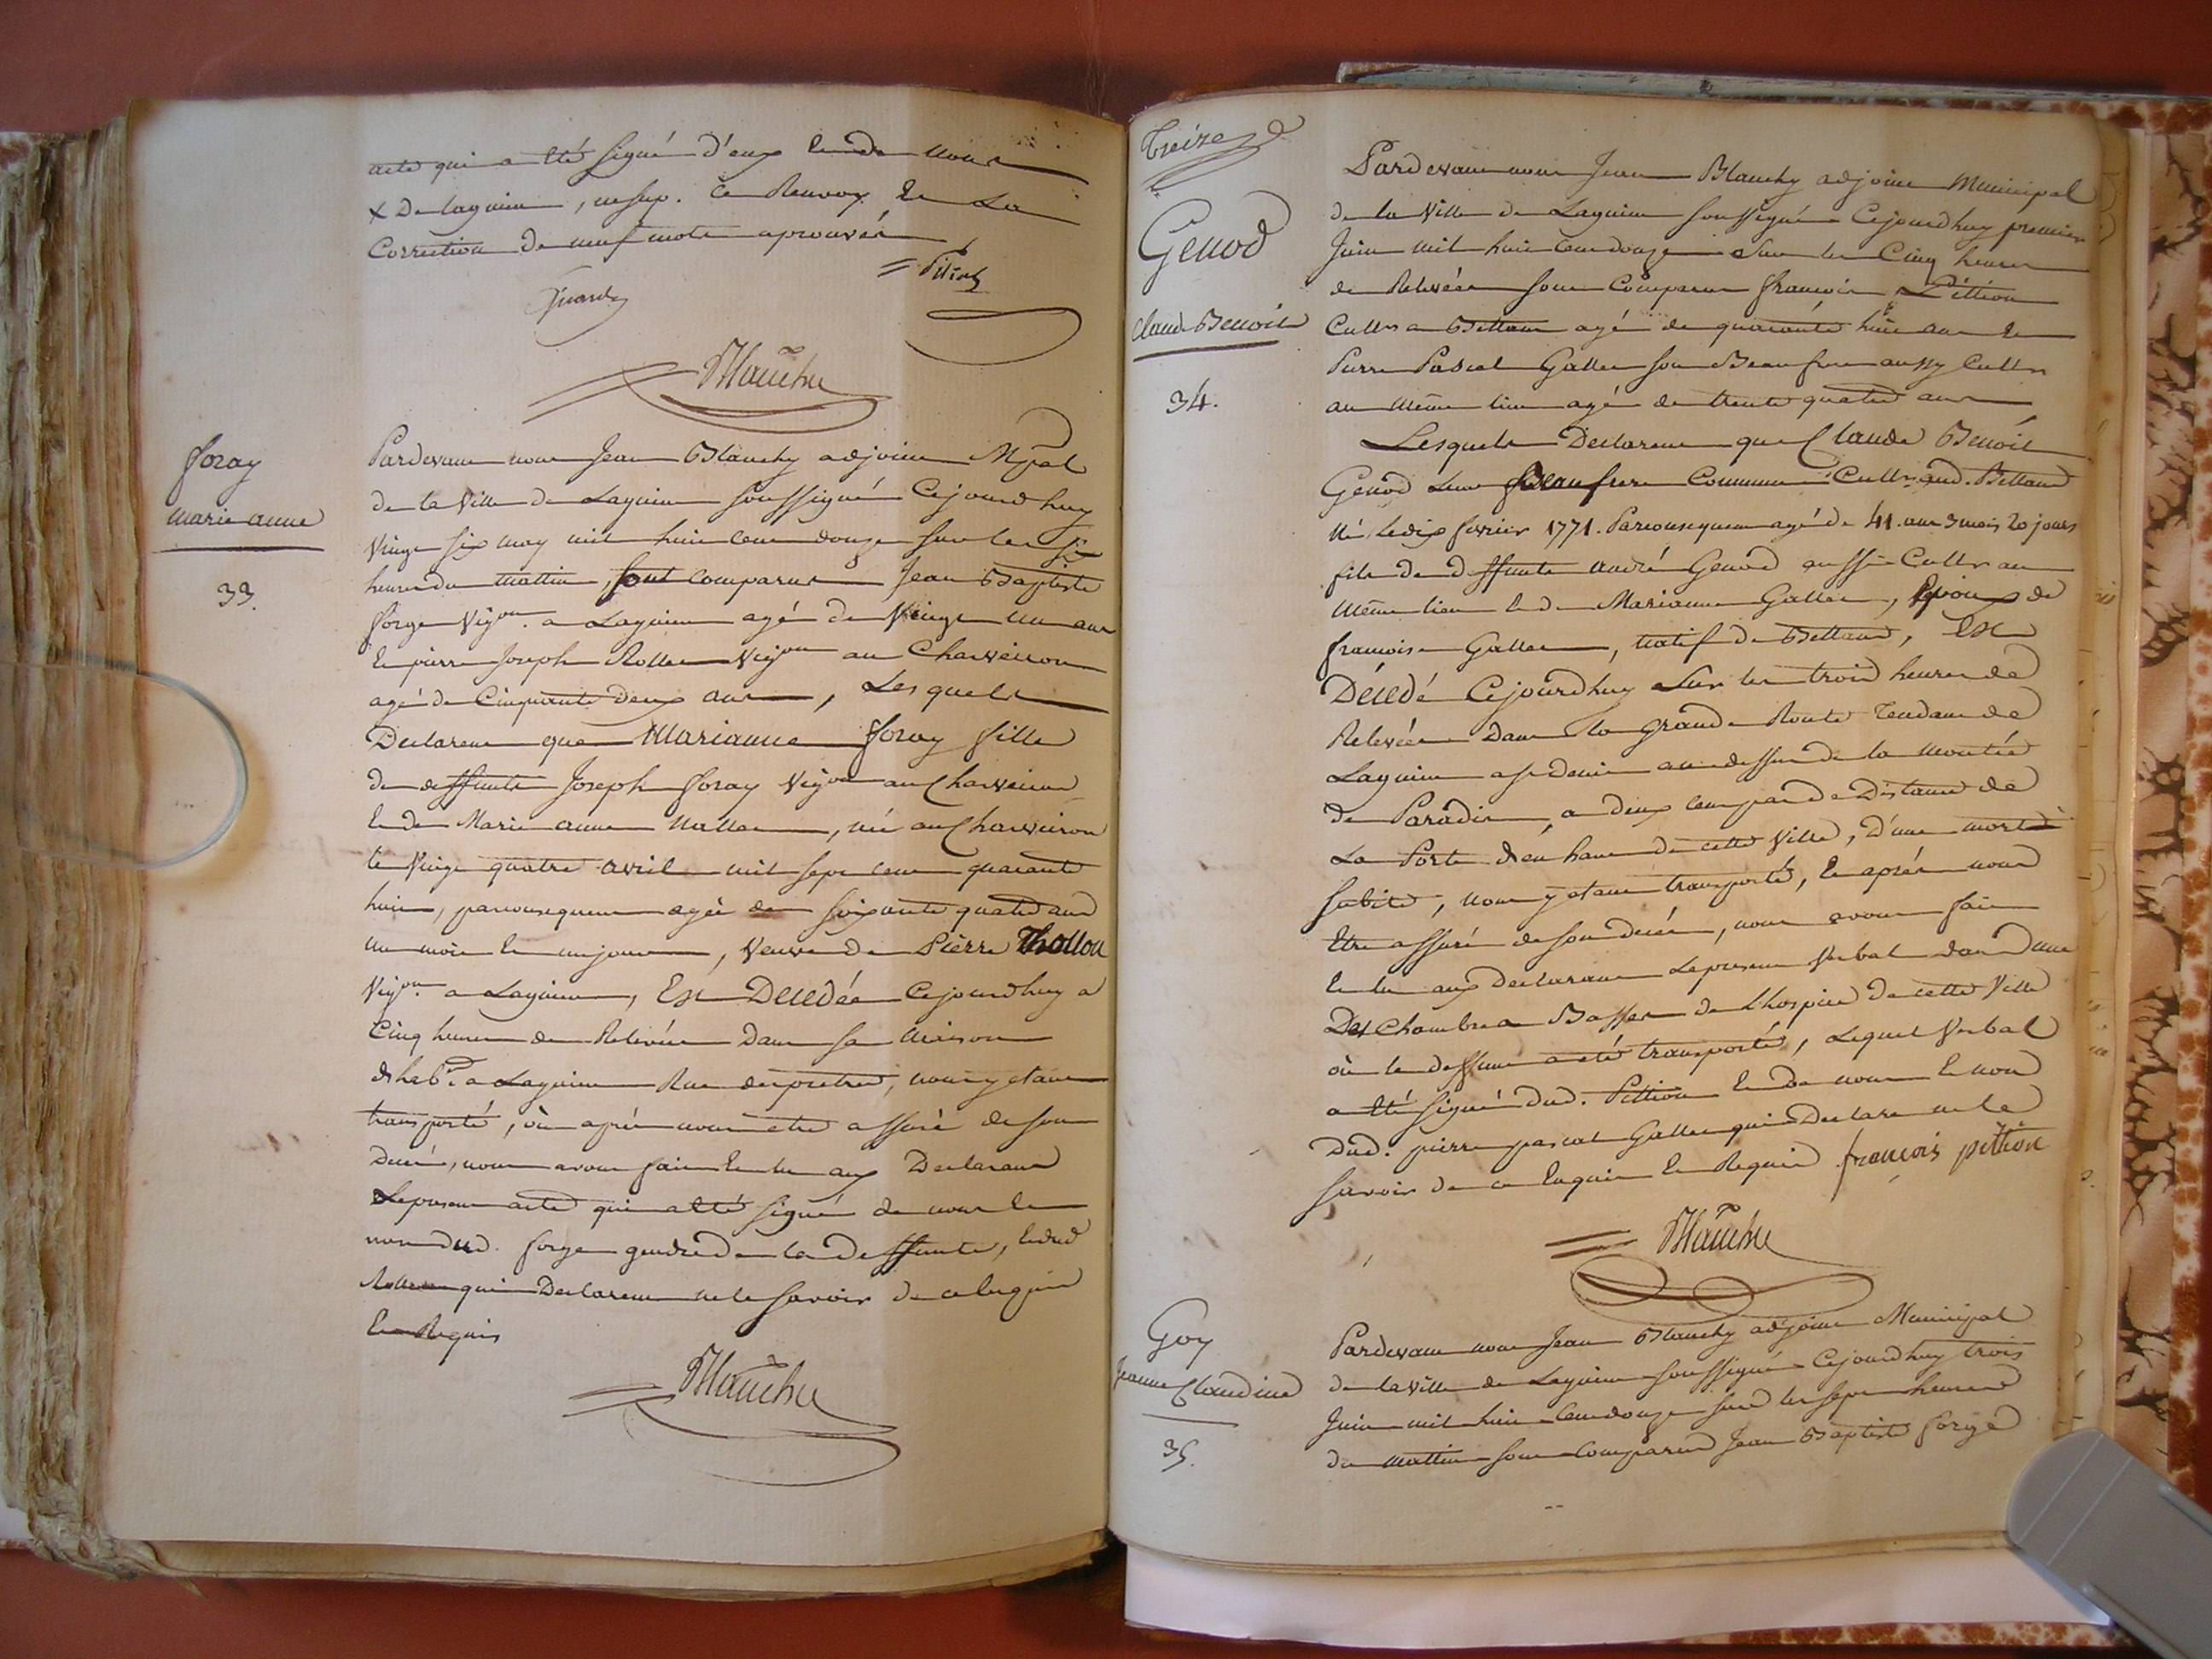 acte qui a été signé d'eux et de nous
x De lagnieu, ce Renvoy et La
Correction de neuf mots aprouvés
Blanchy
foray
marie anne
33.
Pardevant nous Jean Blanchy adjoint Mpal
de la Ville de Lagnieu soussigné Cejourd'huy
Vingt six may mil huit cent douze sur les six
heures du mattin, sont comparus Jean Baptiste
forge Vigon a Lagnieu agé de Vingt un ans
et pierre Joseph Rollet Vigon au Charveiron
agé de Cinquante Deux ans, Lesquels
Declarent que Marianne foray fille
de deffunts Joseph foray Vigon au Charveiron
et de Marie anne Nallet, née au Charveiron
le Vingt quatre avril mil sept cent quarante
huit, parconsequent agée de soixante quatre ans
un mois et un jour, Veuve de Pierre Thollon
Vigon a Lagnieu, Est Decedée Cejourd'huy a
Cinq heures de Relevée Dans sa Maison
d'hab.on a Lagnieu Rue des pretres, nous y etant
transporté, où après nous etre assuré de son
Decés, nous avons fait et lu aux Declarants
Le present acte qui a été signé de nous et
non dud. forge gendre de la Deffunte, et dud
Rollet qui Declarent ne le savoir de ce enquis
Et Requis
Blanchy
Treize
Genod
Claude Benoit
34.
Pardevant nous Jean Blanchy adjoint Municipal
de la Ville de Lagnieu soussigné Cejourd'huy premier
Juin mil huit Cent douze Sur les Cinq heures
de Relevée sont Comparus françois Pittion
Cultr a Bettant agé de quarante huit ans et
Pierre Pascal Gallet son Beaufrere aussy Cultr
au même lieu agé de trente quatre ans
Lesquels Declarent que Claude Benoit
Genod Leur Beaufrere Commun Cultr aud. Bettant
Né Le dix fevrier 1771. Parconsequent agé de 41. ans 3 mois 20 jours
fils de deffunts André Genod aussi Cultr au
même lieu et de Marianne Gallet, Epoux de
françoise Gallet, natif de Bettant, Est
Décedé Cejourd'huy Sur les trois heures de
Relevée Dans la grande Route Tendant de
Lagnieu a St Denis au dessus de la montée
de Paradis, a deux cent pas de Distance de
La Porte d'en haut de cette Ville, D'une mort
subite, nous y etant transporté, et après nous
Etre assuré de son decés, nous avons fait
et lu aux declarants Le present Verbal dans Une
Des Chambres Basses de L'hospice de cette Ville
où le deffunt a eté transporté, Lequel Verbal
a été signé dud. Pittion et de nous et non
Dud. pierre pascal Gallet qui a Declaré ne le
savoir de ce Enquis et Requis françois pithion
Blanchy
Goy
Jeanne Claudine
35.
Pardevant nous Jean Blanchy adjoint Municipal
de la Ville de Lagnieu soussigné Cejourd'huy trois
Juin mil huit Cent douze sur les sept heures
du mattin sont Comparus Jean Baptiste forge